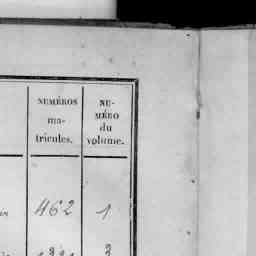 NUMÉROS
ma-
tricules.
NU-
MÉRO
du
volume.
462 1
3